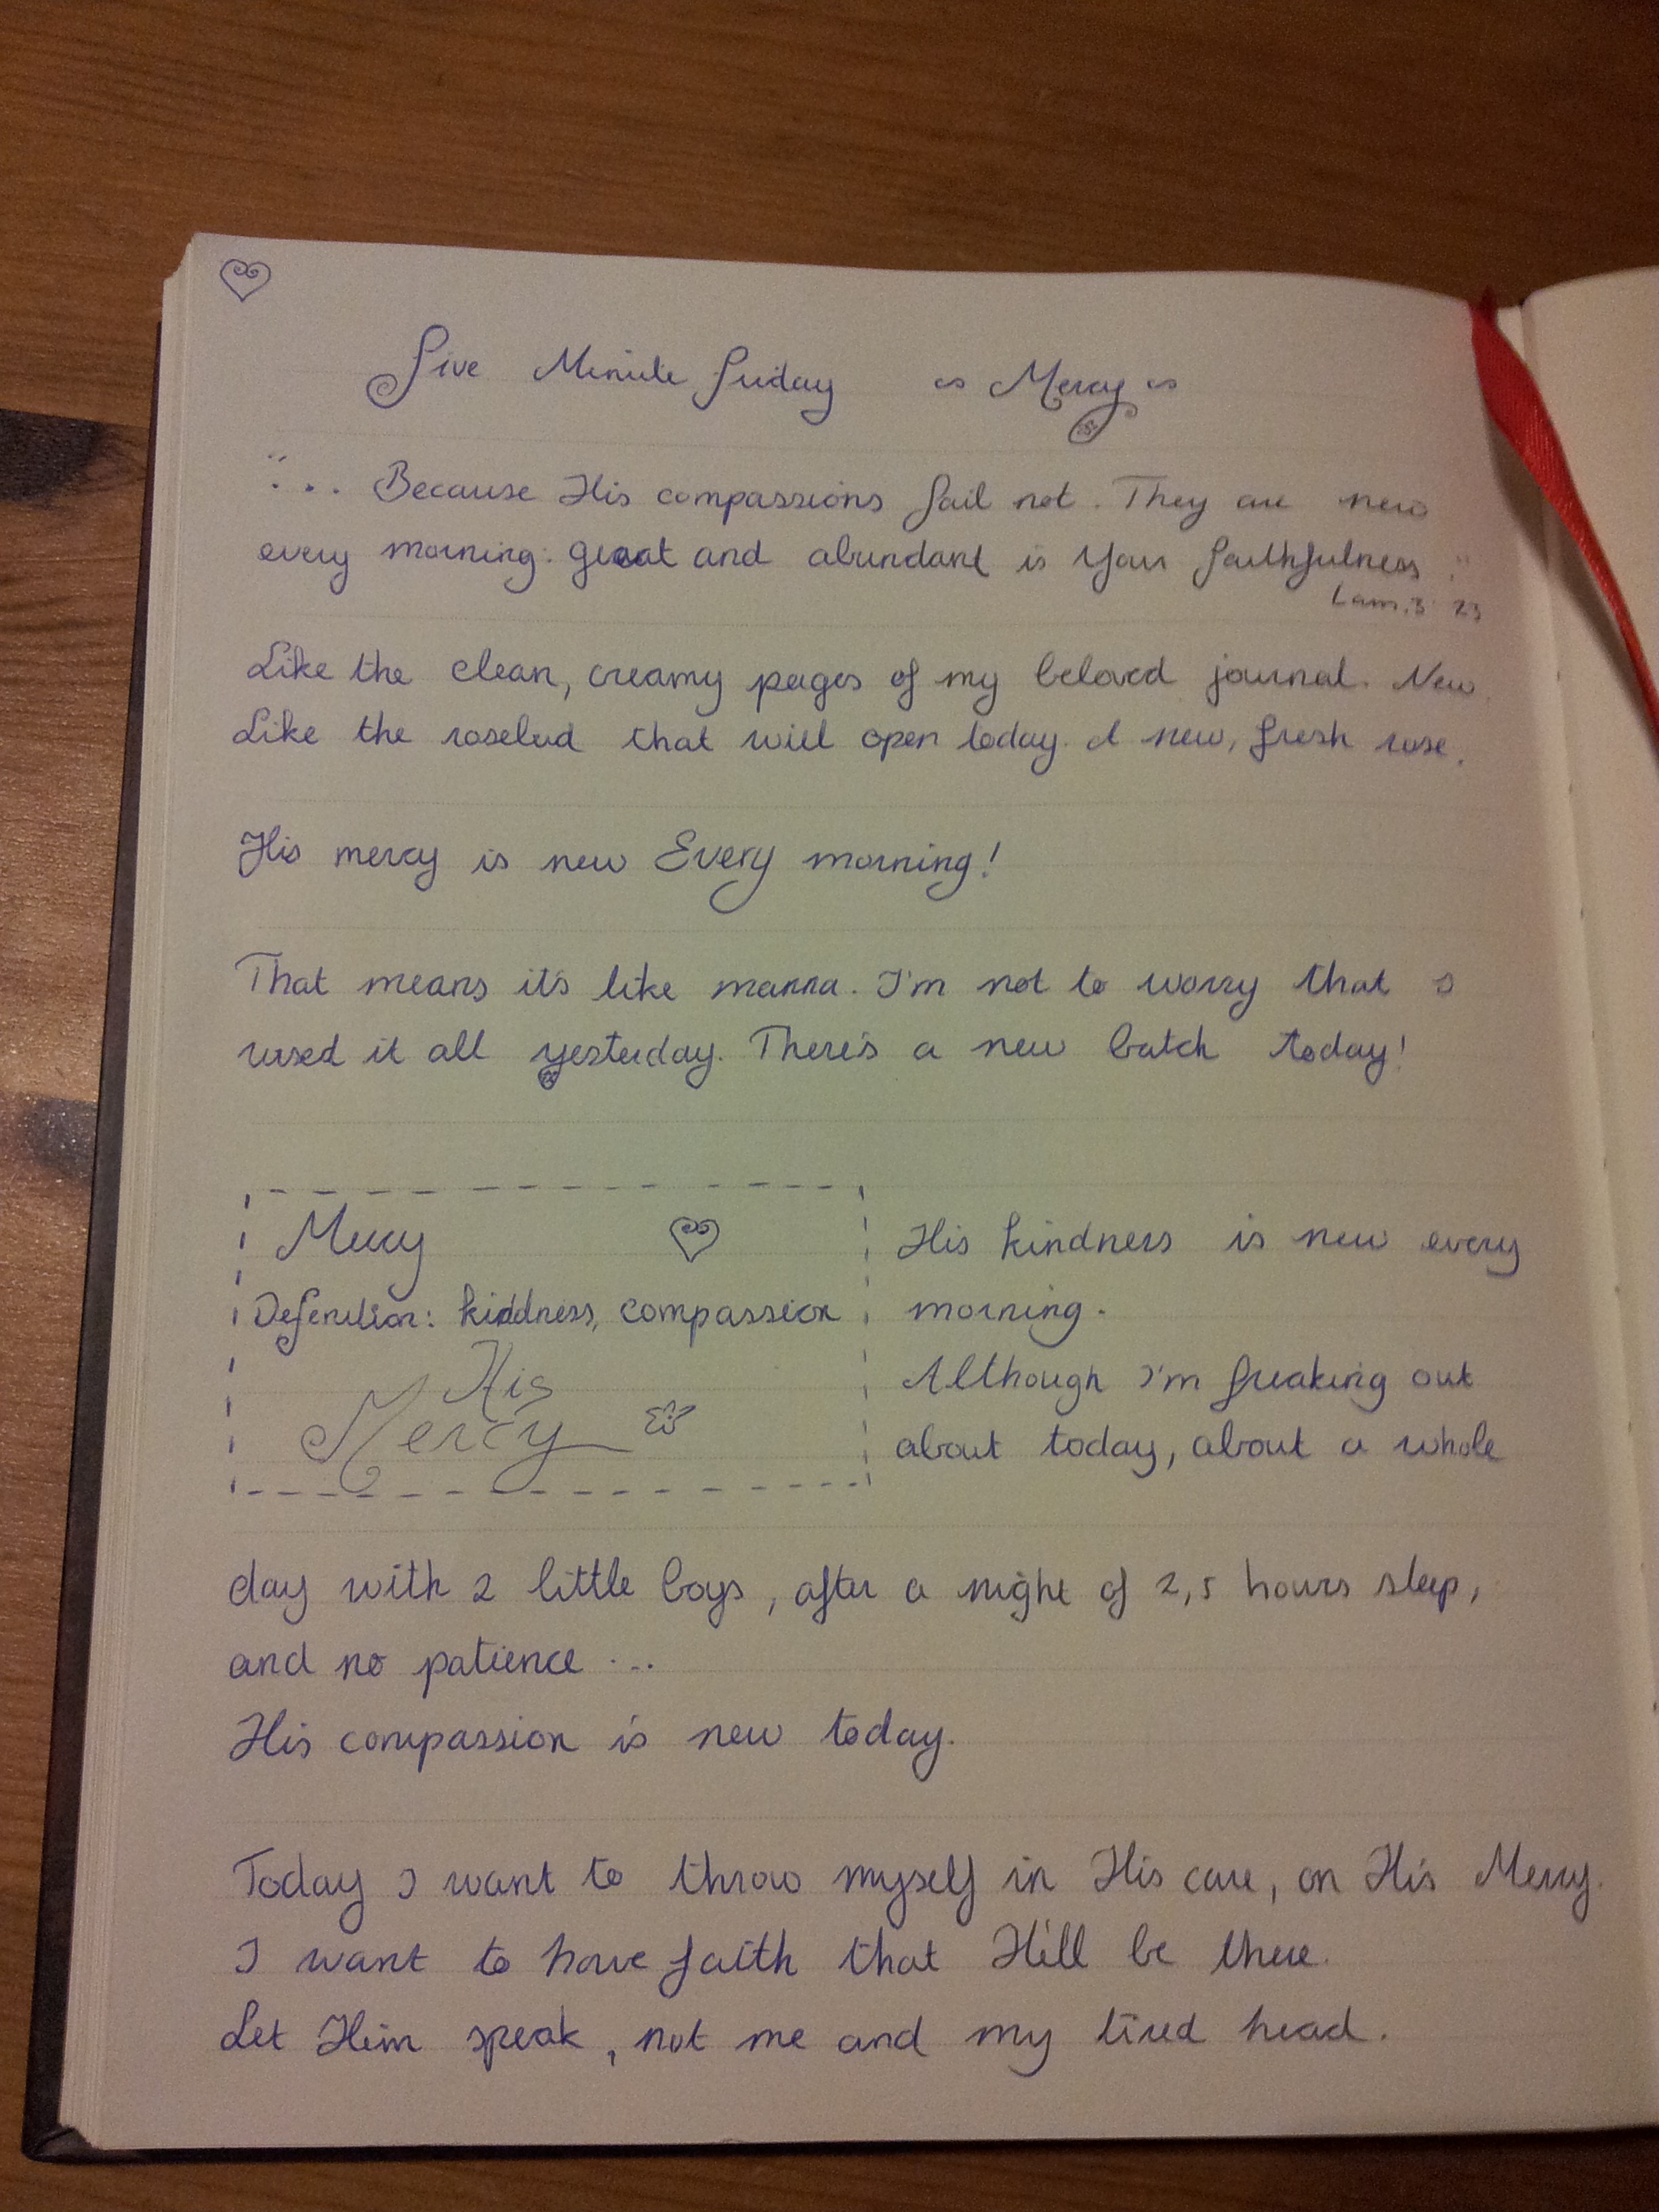 Five Minute Friday ~ Mercy ~
"... Because His compassions fail not. They are new
every morning: great and abundant is Your faithfulness."
Lam. 3:23
Like the clean, creamy pages of my beloved journal. New.
Like the rosebud that will open today. A new, fresh rose.
His mercy is new Every morning!
That means it's like manna. I'm not to worry that I
used it all yesterday. There's a new batch today!
Mercy
Defenition: kindness, compassion
His
Mercy
His kindness is new every
morning.
Although I'm freaking out
about today, about a whole
day with 2 little boys, after a night of 2,5 hours sleep,
and no patience ...
His compassion is new today.
Today I want to throw myself in His care, on His Mercy.
I want to have faith that He'll be there.
Let Him speak, not me and my tired head.